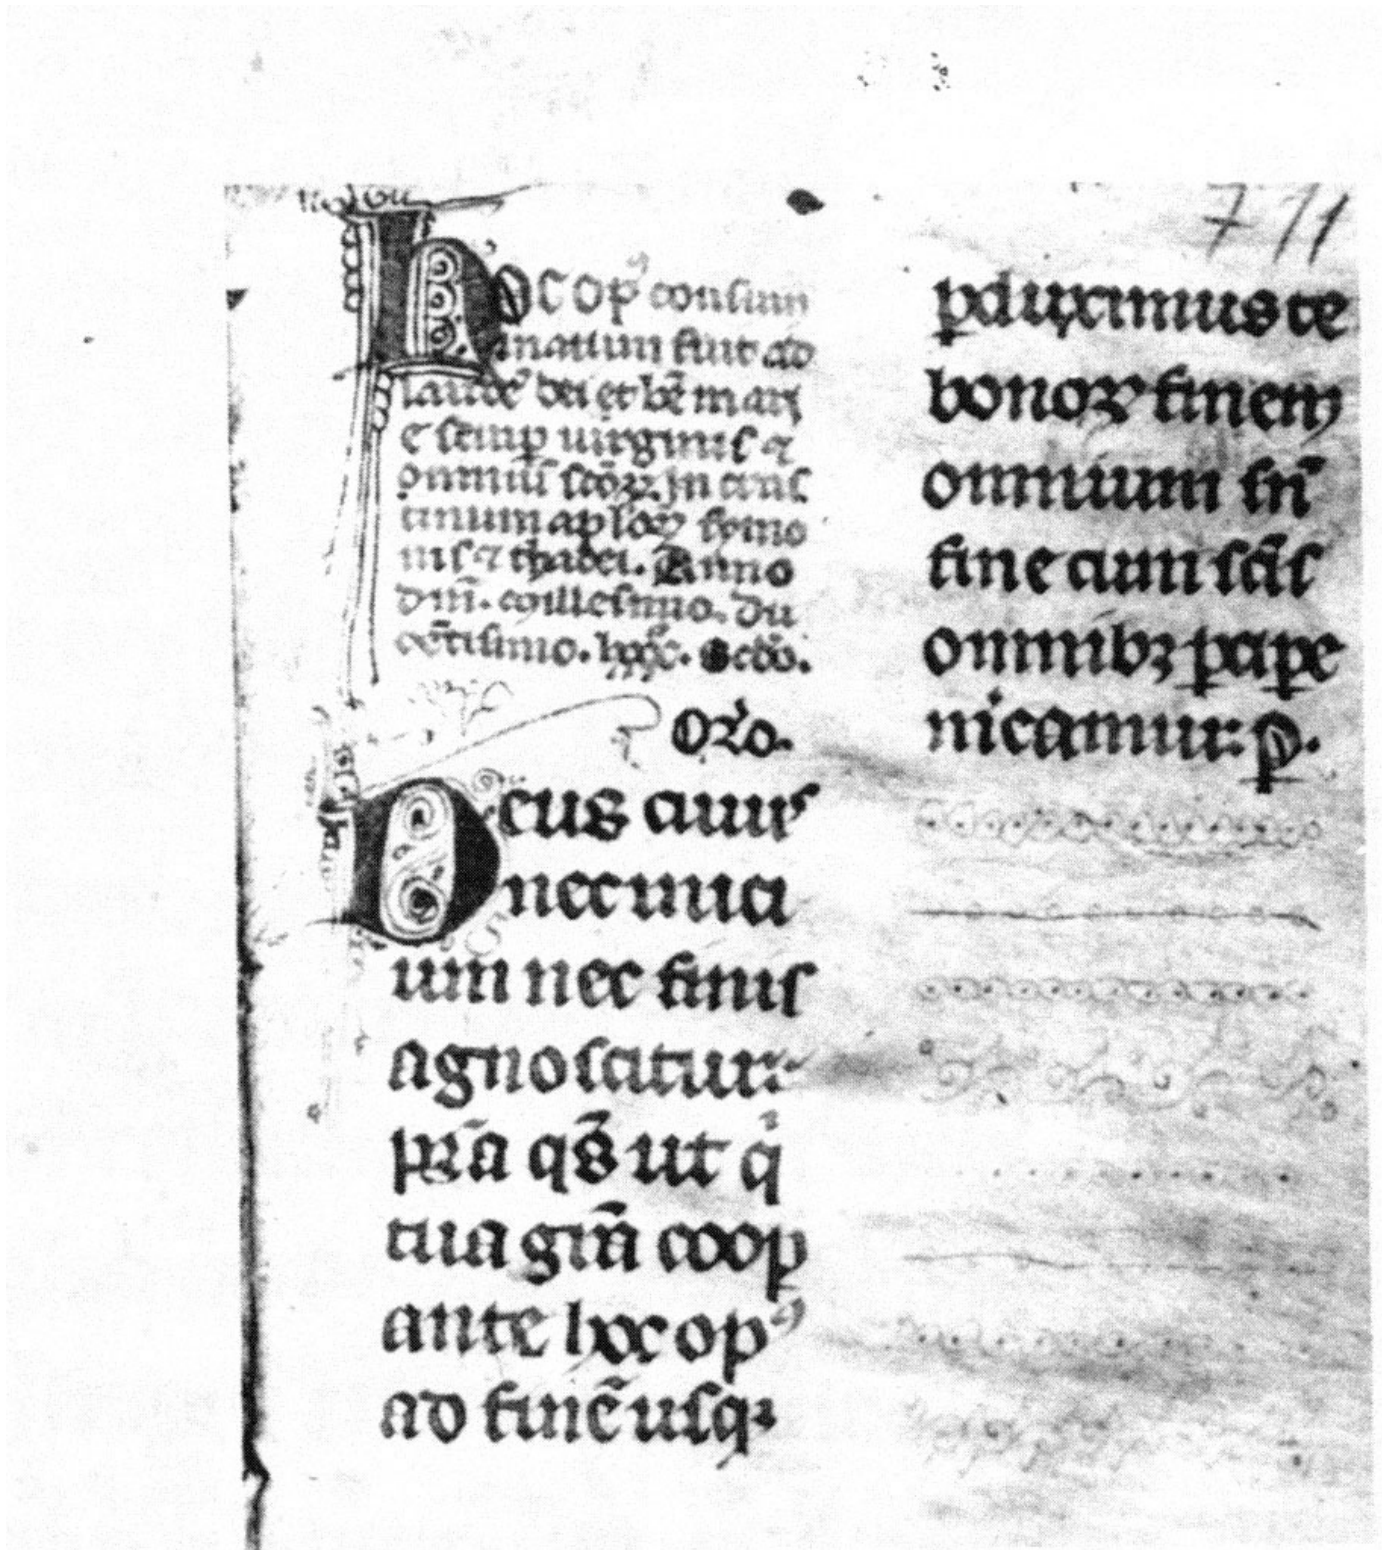 hoc opꝰ consum
matum fuit ad
laudē dei et bē mari
e semꝑ uirginis ⁊
omniū scōꝝ. in cras
tinum aplōꝝ symo
nis ⁊ thadei. Anno
dnī. millesimo. du
cētisimo. lxxx. scdo.
Orō.
Deus cuius
nec inici
um nec finis
agnoscitur:
p̄ra qs̄ ut q̇
tua grā̄ cooꝑ
ante hoc opꝰ
ad finē usqꝫ
ꝑduximus te
bonoꝝ finem
omnium sn̄
fine cum scīs
omnibꝫ ꝑcipe
nicamur: ꝑ.